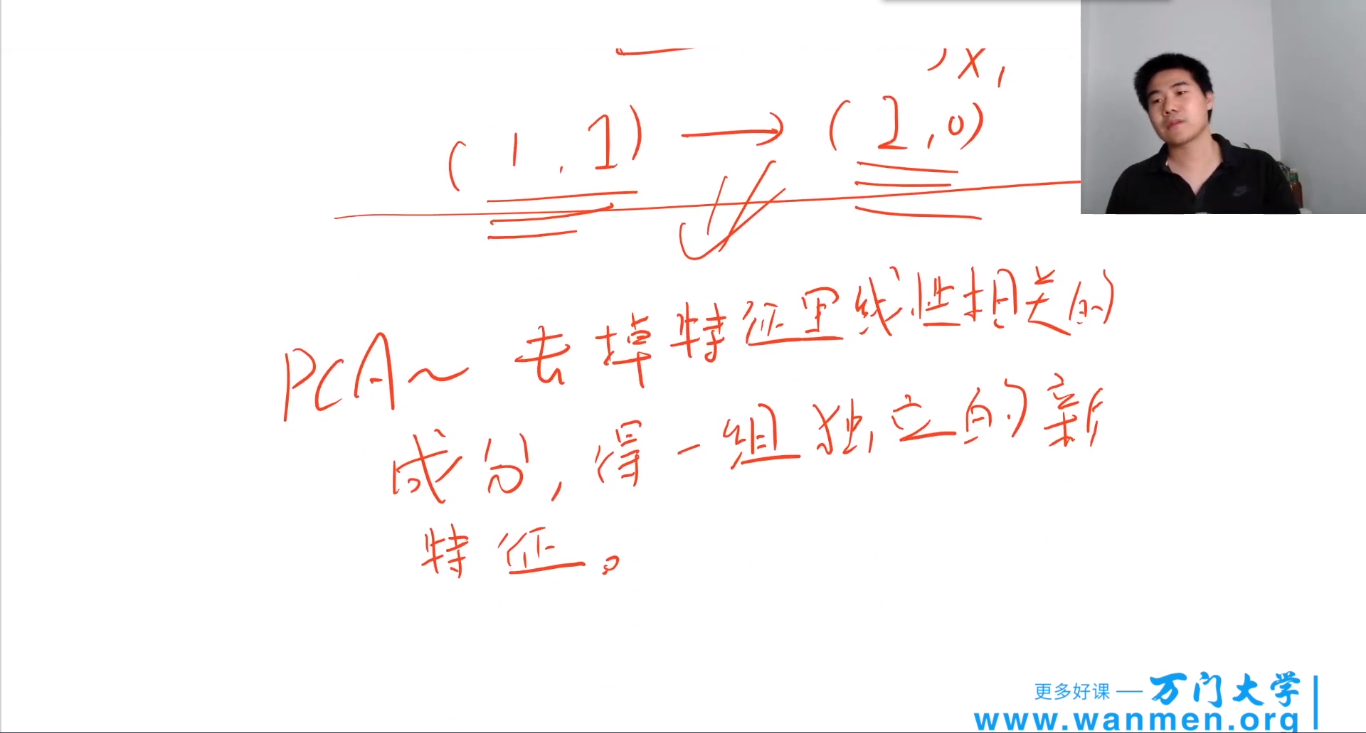 , x,
(1, 1) → (2, 0)
PCA~ 去掉特征里线性相关的
成分, 得一组独立的新
特征。
更多好课 — 万门大学
www.wanmen.org